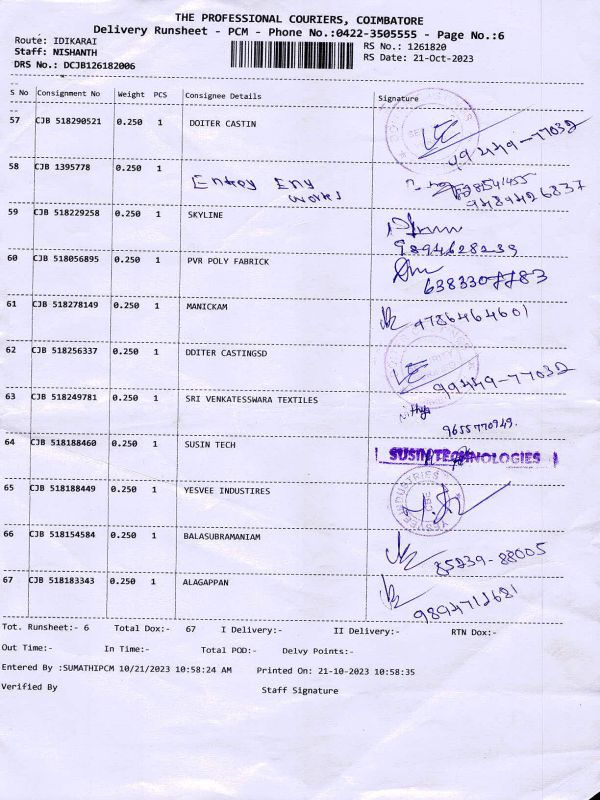 THE PROFESSIONAL COURIERS, COIMBATORE
Delivery Runsheet - PCM - Phone No.:0422-3505555 - Page No.:6
Route: IDIKARAI
RS No.: 1261820
Staff: NISHANTH
RS Date: 21-Oct-2023
DRS No.: DCJB126182006
S No Consignment No Weight PCS Consignee Details Signature
57 CJB 518290521 0.250 1 DOITER CASTIN 99449-77032
58 CJB 1395778 0.250 1 Entroy Eny works
9489426837
59 CJB 518229258 0.250 1 SKYLINE
9894628239
60 CJB 518056895 0.250 1 PVR POLY FABRICK
61 CJB 518278149 0.250 1 MANICKAM 9786464601
62 CJB 518256337 0.250 1 DDITER CASTINGSD 99449-77032
63 CJB 518249781 0.250 1 SRI VENKATESSWARA TEXTILES Nithya
9655770949.
64 CJB 518188460 0.250 1 SUSIN TECH SUSIN TECHNOLOGIES
65 CJB 518188449 0.250 1 YESVEE INDUSTIRES YESVEE INDUSTRIES CBE
66 CJB 518154584 0.250 1 BALASUBRAMANIAM 85239-88005
67 CJB 518183343 0.250 1 ALAGAPPAN 9894712681
Tot. Runsheet:- 6 Total Dox:- 67 I Delivery:- II Delivery:- RTN Dox:-
Out Time:- In Time:- Total POD:- Delvy Points:-
Entered By :SUMATHIPCM 10/21/2023 10:58:24 AM Printed On: 21-10-2023 10:58:35
Verified By Staff Signature